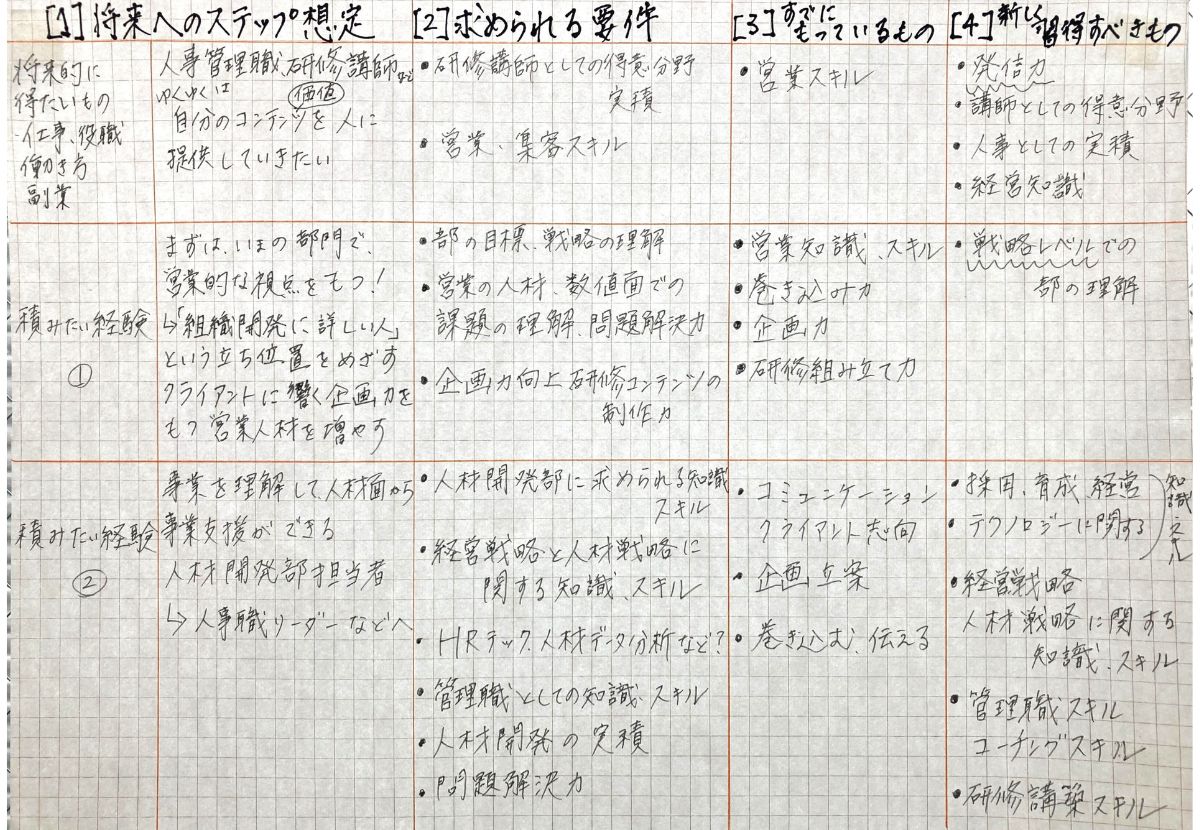 [1]将来へのステップ想定
[2]求められる要件
[3]すでに
もっているもの
[4]新しく
習得すべきもの
将来的に
得たいもの
・仕事、役職
働き方
副業
人事管理職、研修講師など
ゆくゆくは 価値
自分のコンテンツを人に
提供していきたい
・研修講師としての得意分野
実積
・営業・集客スキル
・営業スキル
・発信力
・講師としての得意分野
・人事としての実積
・経営知識
積みたい経験
①
まずは、いまの部門で、
営業的な視点をもつ!
↳「組織開発に詳しい人」
という立ち位置をめざす
クライアントに響く企画力を
もつ営業人材を増やす
・部の目標、戦略の理解
・営業の人材、数値面での
課題の理解、問題解決力
・企画力向上研修コンテンツの
制作力
・営業知識、スキル
・巻き込み力
・企画力
・研修組み立て力
・戦略レベルでの
部の理解
積みたい経験
②
事業を理解して、人材面から
事業支援ができる
人材開発部担当者
↳人事職リーダーなどへ
・人材開発部に求められる知識
スキル
・経営戦略と人材戦略に
関する知識、スキル
・HRテック、人材データ分析など?
・管理職としての知識、スキル
・人材開発の実積
・問題解決力
・コミュニケーション
クライアント志向
・企画立案
・巻き込む、伝える
・採用、育成、経営
・テクノロジーに関する
知識・スキル
・経営戦略
人材戦略に関する
知識、スキル
・管理職スキル
コーチングスキル
・研修講築スキル